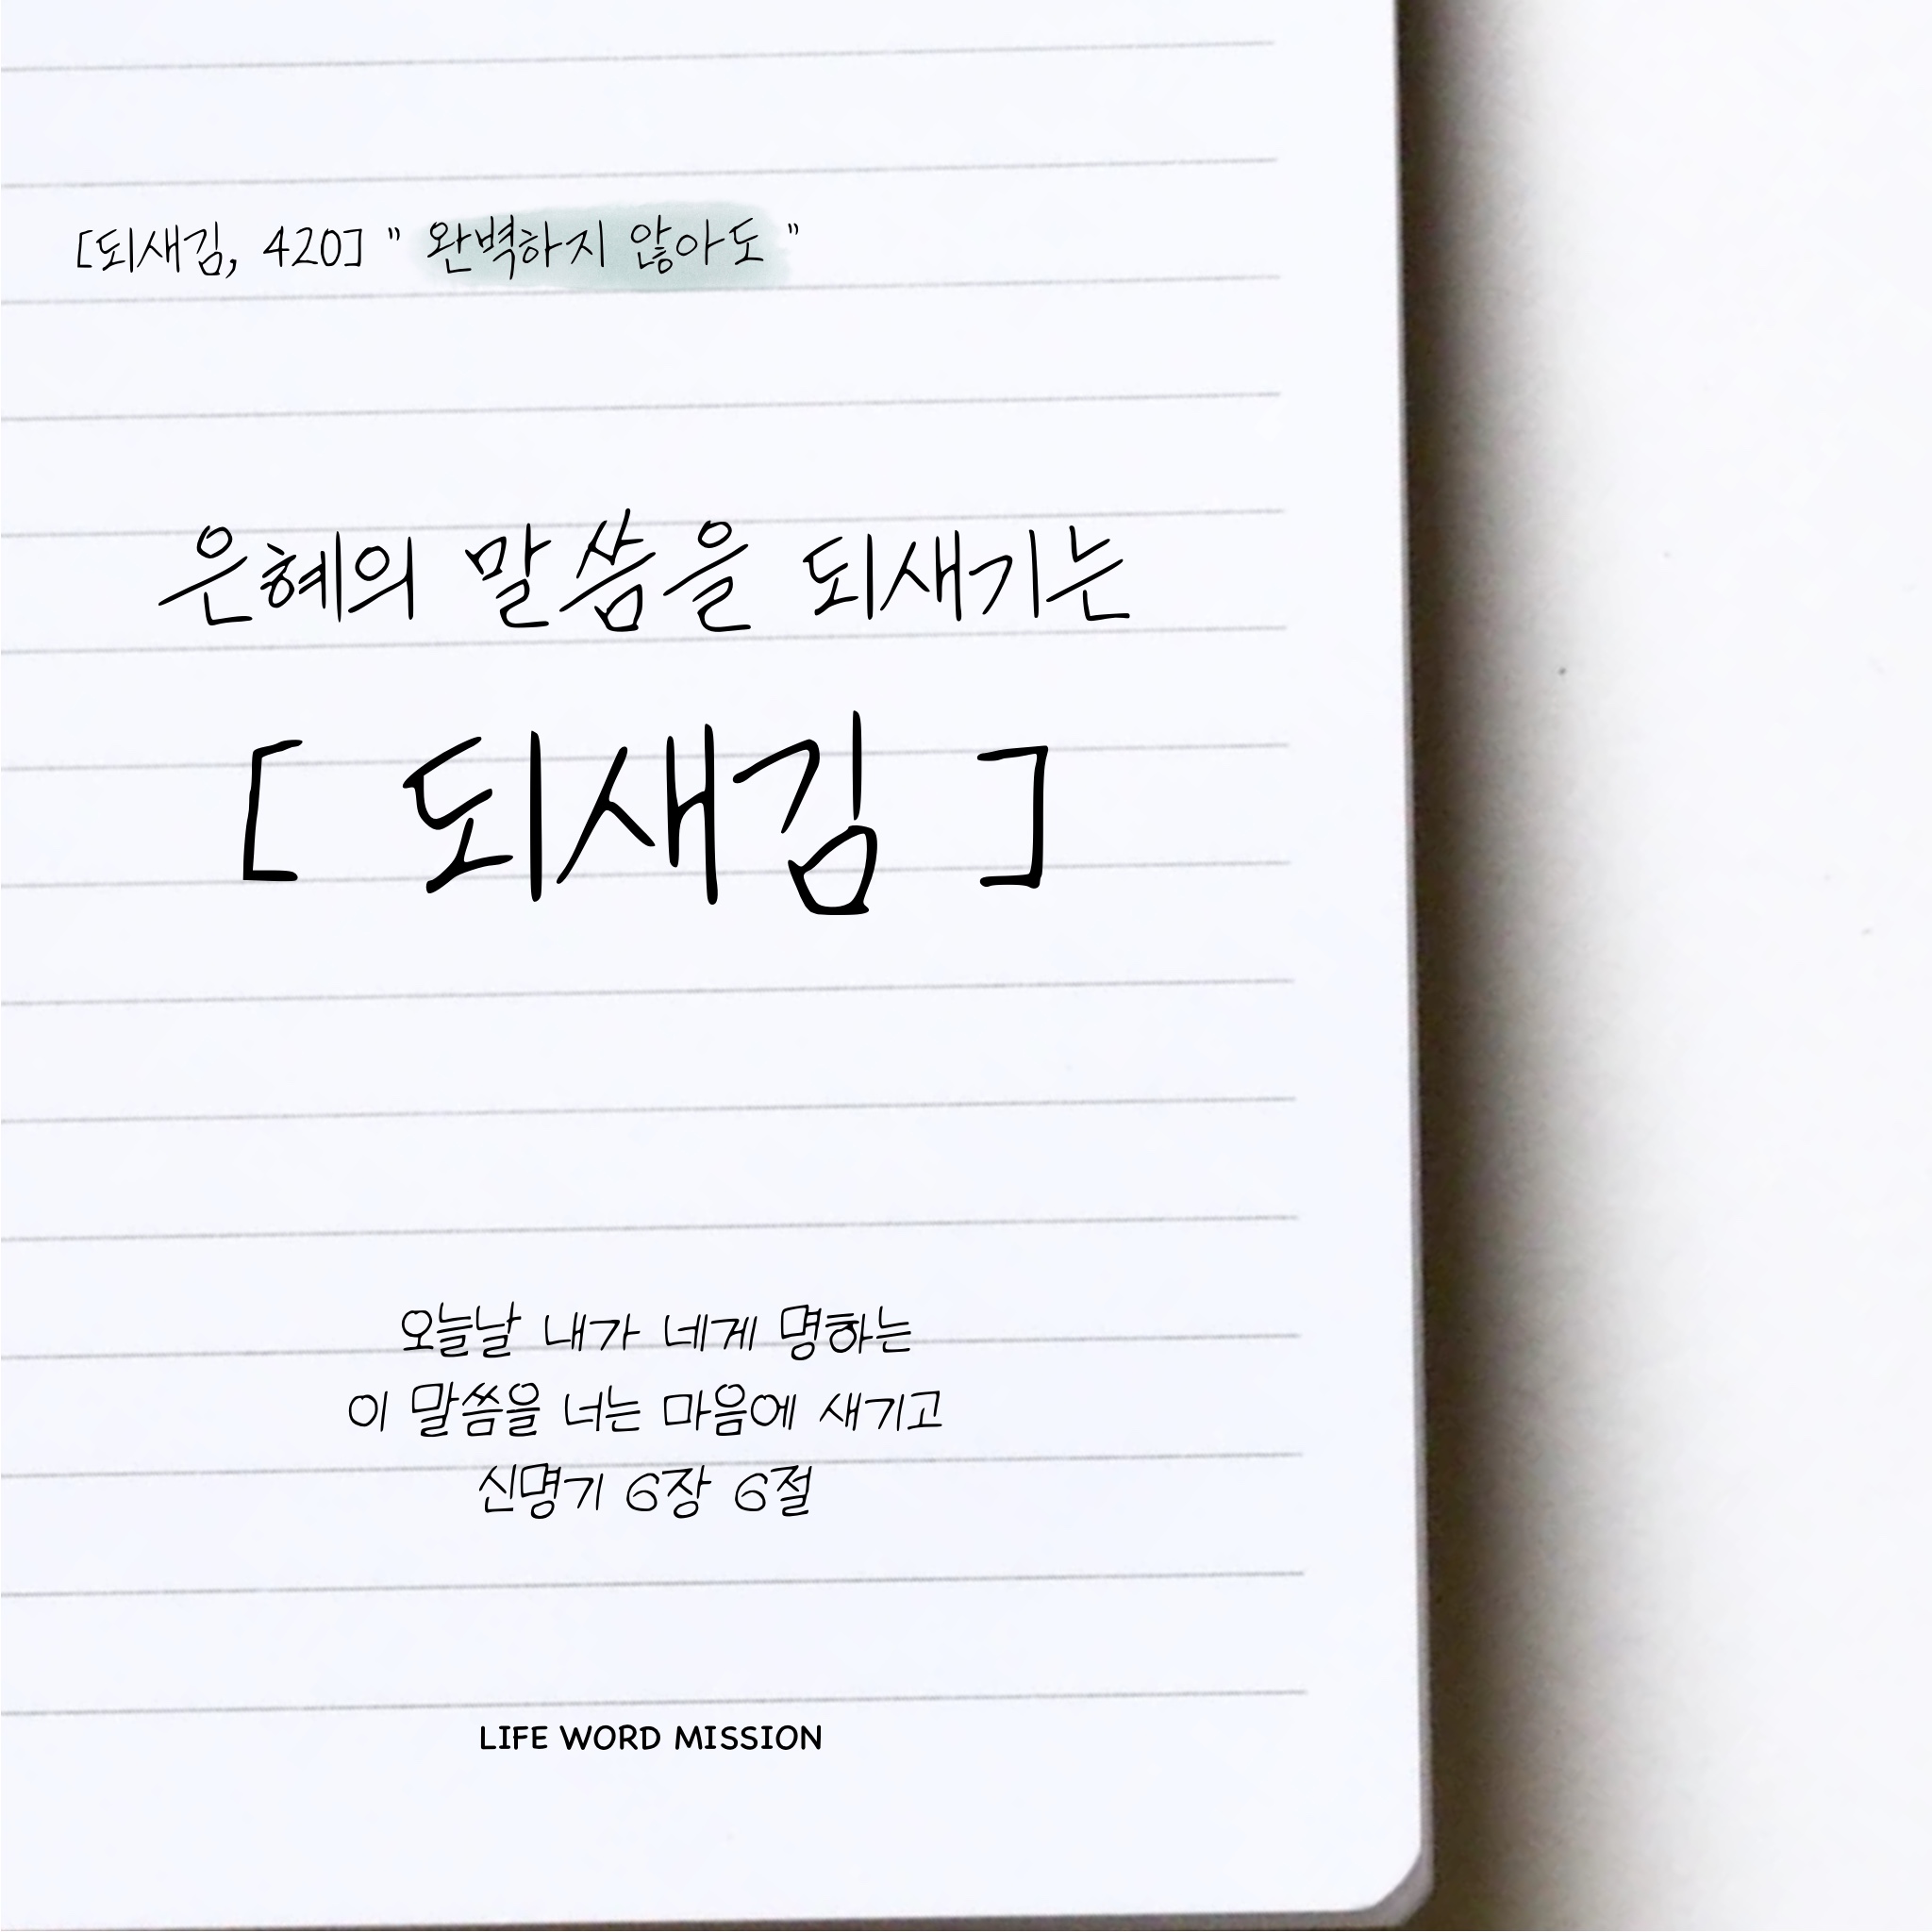 [되새김, 420] " 완벽하지 않아도 "
은혜의 말씀을 되새기는
[ 되새김 ]
오늘날 내가 네게 명하는
이 말씀을 너는 마음에 새기고
신명기 6장 6절
LIFE WORD MISSION